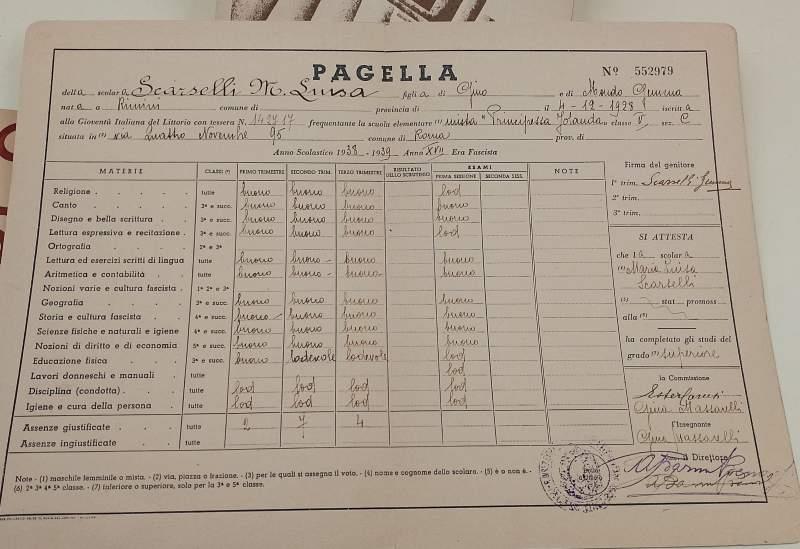 PAGELLA
Nº 552979
della scolara Scarselli M. Luisa figlia di Gino e di Mondo Gemma
nata a Rimini comune di provincia di il 4-12-1928 iscritta
alla Gioventù Italiana del Littorio con tessera N. 142717 frequentante la scuola elementare (1) mista "Principessa Jolanda" classe V sez. C
situata in (2) via Quattro Novembre 95 comune di Roma prov. di
Anno Scolastico 1938-1939 Anno XVII Era Fascista
MATERIE CLASSI (3) PRIMO TRIMESTRE SECONDO TRIM. TERZO TRIMESTRE RISULTATO DELLO SCRUTINIO ESAMI PRIMA SESSIONE SECONDA SESS. NOTE
Religione tutte buono buono buono lod
Canto 3ª e succ. buono buono buono buono
Disegno e bella scrittura 3ª e succ. buono buono buono buono
Lettura espressiva e recitazione 3ª e succ. buono buono buono lod
Ortografia 2ª e 3ª
Lettura ed esercizi scritti di lingua tutte buono buono buono buono
Aritmetica e contabilità tutte buono buono buono buono
Nozioni varie e cultura fascista 1ª 2ª e 3ª
Geografia 3ª e succ. buono buono buono buono
Storia e cultura fascista 4ª e succ. buono buono buono buono
Scienze fisiche e naturali e igiene 4ª e succ. buono buono buono buono
Nozioni di diritto e di economia 5ª e succ. buono buono buono buono
Educazione fisica 3ª e succ. buono lodevole lodevole lod
Lavori donneschi e manuali tutte lod
Disciplina (condotta) tutte lod lod lod lod
Igiene e cura della persona tutte lod lod lod lod
Assenze giustificate tutte 2 7 4
Assenze ingiustificate tutte
Note - (1) maschile femminile o mista. - (2) via, piazza o frazione. - (3) per le quali si assegna il voto. - (4) nome e cognome dello scolaro. - (5) è o non è. -
(6) 2ª 3ª 4ª 5ª classe. - (7) inferiore o superiore, solo per la 3ª e 5ª classe.
Firma del genitore
1º trim. Scarselli Gemma
2º trim.
3º trim.
SI ATTESTA
che la scolara
(4) Maria Luisa
Scarselli
(5) stat promoss
alla (6)
ha completato gli studi del
grado (7) superiore
la Commissione
Gina Massarelli
l'Insegnante
Gina Massarelli
Il Direttore